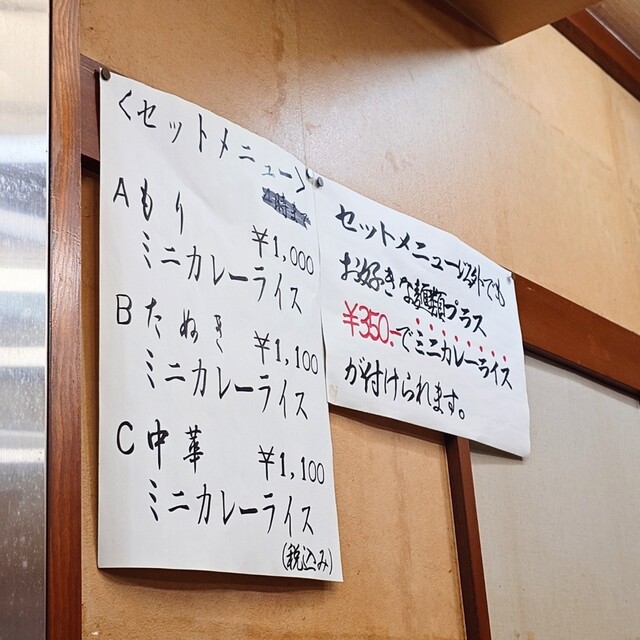 ＜セットメニュー＞
A もり ¥1,000
ミニカレーライス
B たぬき ¥1,100
ミニカレーライス
C 中華 ¥1,100
ミニカレーライス
(税込み)
セットメニュー以外でも
お好きな麺類プラス
¥350.-でミニカレーライス
が付けられます。